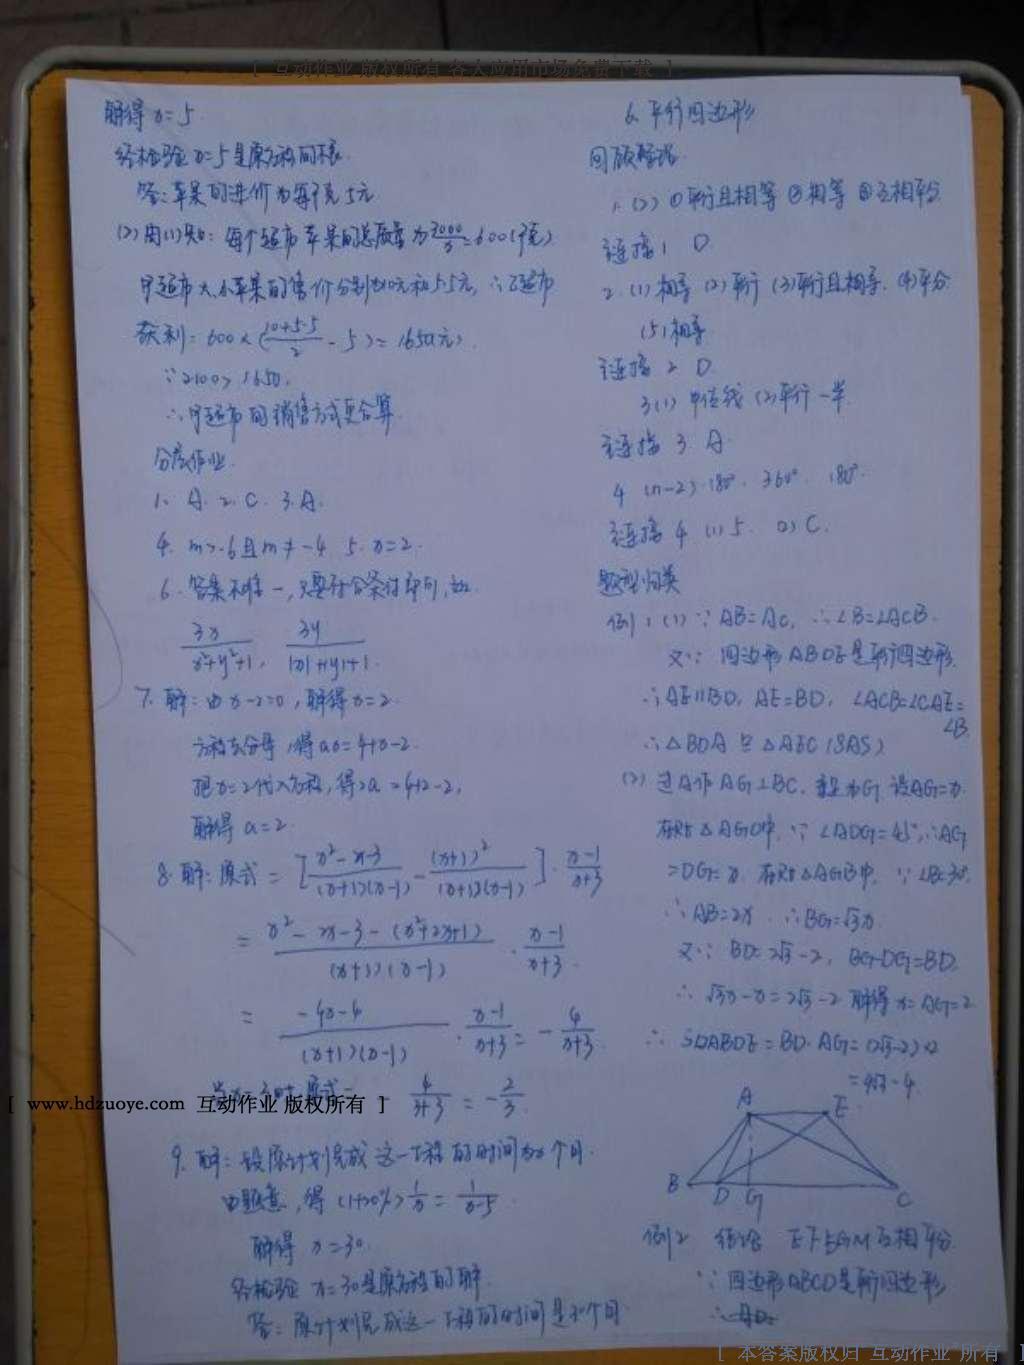 [ 互动作业 版权所有 各大应用市场免费下载 ]
解得 x=5.
经检验 x=5 是原方程的根.
答:苹果的进价为每千克5元
(2) 由(1)知: 每个超市苹果的总质量为 3000/5 = 600(千克)
甲超市大、小苹果的售价分别为10元和5.5元, ∴乙超市
获利: 600×(10+5.5/2 - 5) = 1650(元).
∵2100>1650.
∴甲超市的销售方式更合算.
分层作业.
1. A. 2. C. 3. A.
4. m>-6且m≠-4 5. x=2.
6. 答案不唯一,只要符合条件即可,如
3x/x²+y²+1, 3y/|x|+|y|+1.
7. 解: 由x-2=0, 解得x=2.
方程去分母,得ax=4+x-2.
把x=2代入方程,得2a=4+2-2,
解得 a=2.
8. 解: 原式 = [x²-x-3/(x+1)(x-1) - (x+1)²/(x+1)(x-1)]·x-1/x+3
= x²-2x-3-(x²+2x+1)/(x+1)(x-1)·x-1/x+3.
= -4x-4/(x+1)(x-1)·x-1/x+3 = -4/x+3.
当x=3时,原式= 4/3+3 = -2/3.
[ www.hdzuoye.com 互动作业 版权所有 ]
9. 解: 设原计划完成这一工程的时间为x个月.
由题意, 得 (1+20%)1/x = 1/x-5.
解得 x=30.
经检验 x=30是原方程的解.
答: 原计划完成这一工程的时间是30个月
6. 平行四边形
回顾整理.
1. (2) ①平行且相等 ②相等 ③互相平分.
链接1 D.
2. (1)相等 (2)平行 (3)平行且相等. (4)平分
(5)相等
链接2 D.
3 (1) 中位线 (2)平行 一半.
链接3. A.
4 (n-2)·180°. 360°. 180°.
链接4 (1) 5. (2) C.
题型归类
例1 (1) ∵ AB=AC, ∴∠B=∠ACB.
又∵ 四边形ABDE是平行四边形.
∴AE∥BD, AE=BD, ∠ACB=∠CAE=
∠B.
∴△BDA≌△AEC (SAS)
(2) 过A作AG⊥BC, 垂足为G, 设AG=x.
在Rt△AGD中, ∵ ∠ADG=45°, ∴AG
=DG=x. 在Rt△AGB中, ∵ ∠B=30°,
∴AB=2x. ∴BG=√3x.
又∵ BD=2√3-2, BG-DG=BD.
∴ √3x-x=2√3-2 解得x=AG=2.
∴ S▱ABDE=BD·AG=(2√3-2)×2
=4√3-4.
A E
B D G C
例2 结论 EF与GM互相平分.
∵ 四边形ABCD是平行四边形
[ 本答案版权归 互动作业 所有 ]